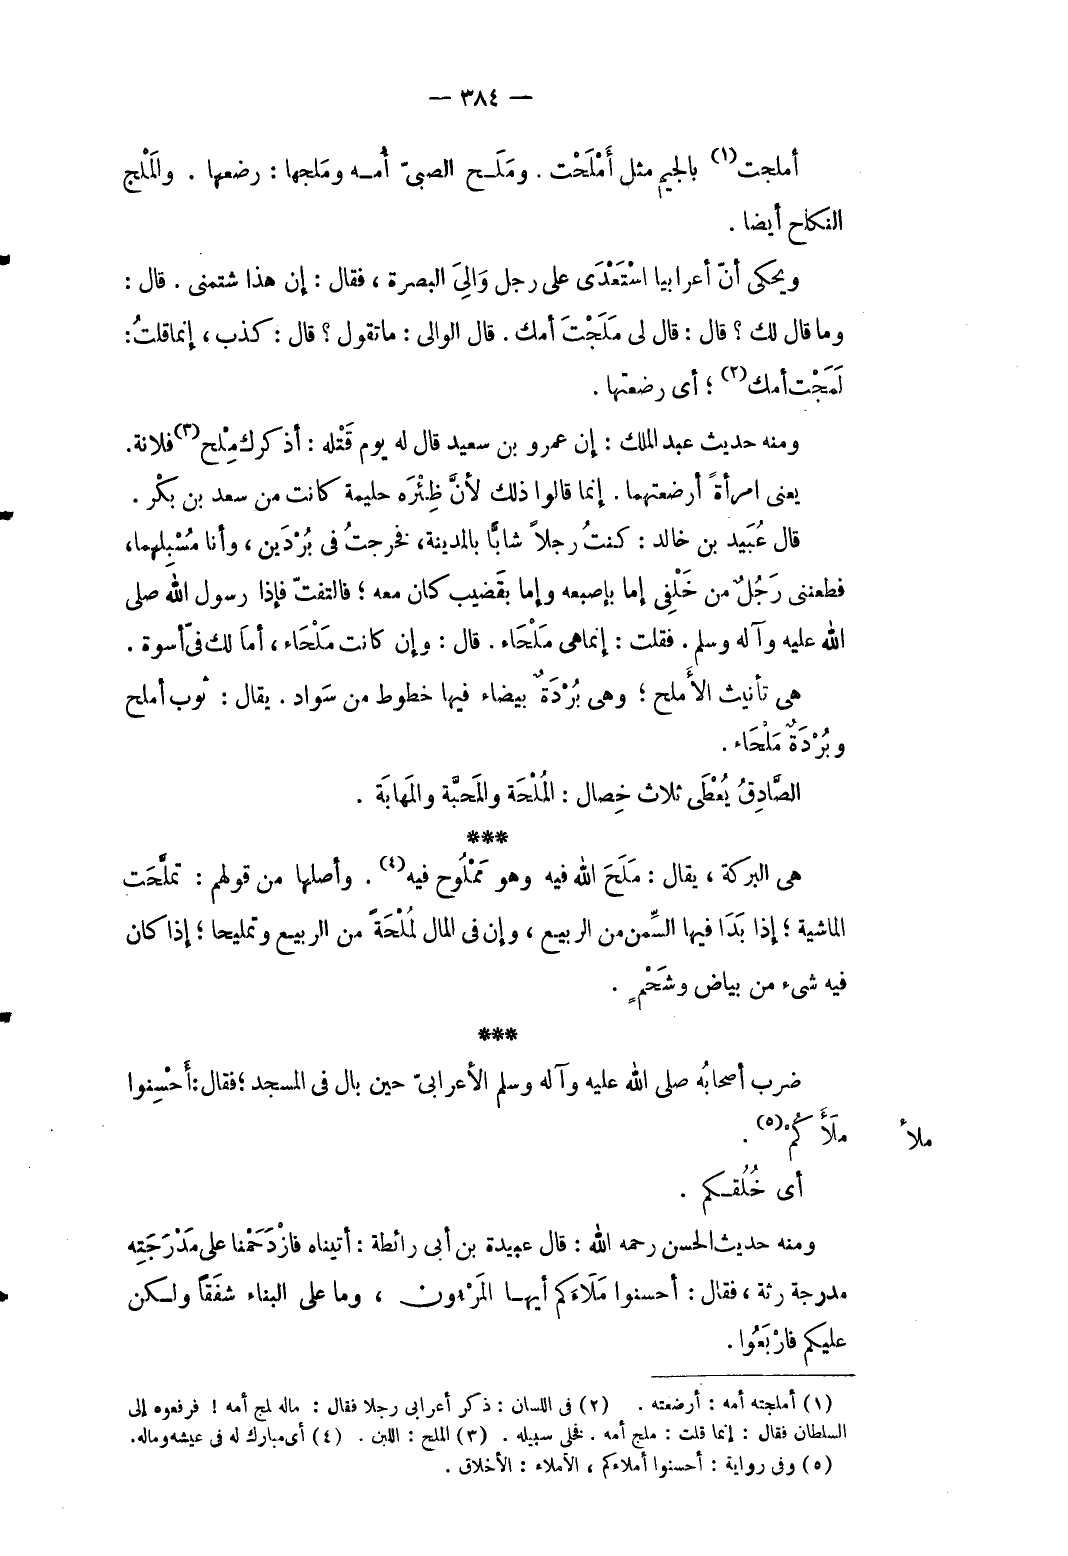 — ٣٨٤ —
أملجت(١) بالجيم مثل أَمْلَحْت . ومَلَـح الصبىّ أمـه ومَلجها : رضعها . والمَلْج
النكاح أيضا .
ويحكى أنّ أعرابيا اسْتَعْدَى على رجل وَالِىَ البصرة ، فقال : إن هذا شتمنى . قال :
وما قال لك ؟ قال : قال لى مَلَجْتَ أمك . قال الوالى : ماتقول ؟ قال : كذب ، إنماقلتُ:
لَمَجْت أمك(٢) ؛ أى رضعتها .
ومنه حديث عبد الملك : إن عمرو بن سعيد قال له يوم قَتْله : أذكرك مِلْح(٣) فلانة.
يعنى امرأةً أرضعتهما . إنما قالوا ذلك لأنَّ ظِئْرَه حليمة كانت من سعد بن بَكْر .
قال عُبَيد بن خالد : كنتُ رجلاً شابًّا بالمدينة، فخرجتُ فى بُرْدَين ، وأنا مُسْبِلهما،
فطعننى رَجُلٌ من خَلْفِى إما بإصبعه وإما بقَضيب كان معه ؛ فالتفتّ فإذا رسول الله صلى
الله عليه وآله وسلم . فقلت : إنماهى مَلْحَاء . قال : وإن كانت مَلْحَاء ، أمَا لك فىّ أسوة .
هى تأنيث الأَملح ؛ وهى بُرْدَةٌ بيضاء فيها خطوط من سَواد . يقال : ثوب أملح
وبُرْدَةٌ مَلْحَاء .
الصَّادِقُ يُعْطَى ثلاث خِصال : المُلْحَة والمَحبَّة والمَهابَة .
***
هى البركة ، يقال : مَلَحَ الله فيه وهو مَمْلُوح فيه(٤) . وأصلها من قولهم : تملَّحَت
الماشية ؛ إذا بَدَا فيها السِّمن من الربيع ، وإن فى المال لمُلْحَةً من الربيع وتمليحا ؛ إذا كان
فيه شىء من بياض وشَحْمٍ .
***
ضرب أصحابُه صلى الله عليه وآله وسلم الأعرابىّ حين بال فى المسجد ؛ فقال : أَحْسِنوا
ملأ
ملَأَ كُمْ(٥) .
أى خُلُقـكم .
ومنه حديث الحسن رحمه الله : قال عبيدة بن أبى رائطة : أتيناه فازْدَحَمْنا على مَدْرَجَتِه
مدرجة رثة ، فقال : أحسنوا مَلَاءَكم أيهـا المَرْءون ، وما على البناء شفَقاً ولـكن
عليكم فارْبَعُوا .
(١) أملجته أمه : أرضعته . (٢) فى اللسان : ذكر أعرابى رجلا فقال : ماله لمج أمه ! فرفعوه إلى
السلطان فقال : إنما قلت : ملج أمه . فخلى سبيله . (٣) الملح : اللبن . (٤) أى مبارك له فى عيشه وماله.
(٥) وفى رواية : أحسنوا أملاءكم ، الآملاء : الأخلاق .